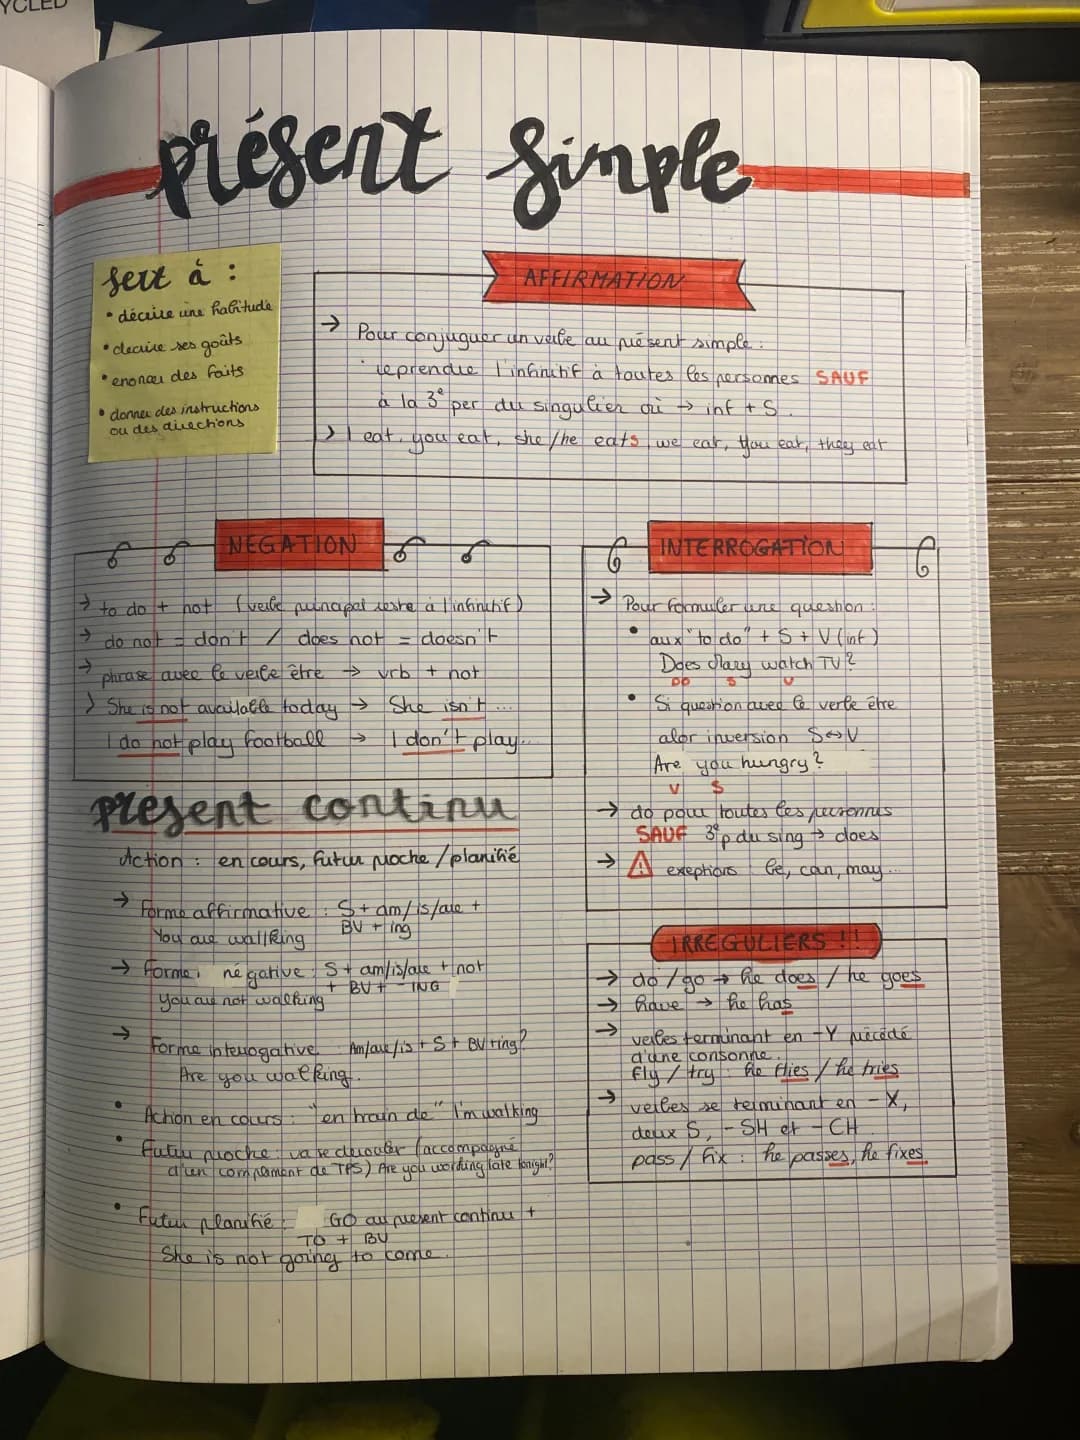 YCLED
présent simple
sert à :
• décrire une habitude
• decrire ses goûts
• enoncer des faits
• donner des instructions
ou des directions
AFFIRMATION
→ Pour conjuguer un verbe au présent simple :
reprendre l'infinitif à toutes les personnes SAUF
à la 3e per du singulier où → inf + S.
> I eat, you eat, she/he eats, we eat, you eat, they eat
NEGATION
→ to do + not (verbe principal reste à l'infinitif)
→ do not = don't / does not = doesn't
→ phrase avec le verbe être → vrb + not
> She is not available today → She isn't ...
I do not play football → I don't play...
INTERROGATION
→ Pour formuler une question :
• aux "to do" + S + V (inf)
Does Mary watch TV ?
DO S V
• Si question avec le verbe être
alor inversion S↔V
Are you hungry ?
V S
→ do pour toutes les personnes
SAUF 3e p du sing → does
→ ⚠ exeptions : be, can, may...
présent continu
Action : en cours, futur proche / planifié
→ Forme affirmative : S + am/is/are +
BV + ing
You are walking
→ Forme négative : S + am/is/are + not
+ BV + -ING
You are not walking
→ Forme interrogative : Am/are/is + S + BV+ing?
Are you walking.
• Action en cours : "en train de" I'm walking
• Futur proche : va se dérouler (accompagné
d'un complément de TPS) Are you working late tonight?
• Futur planifié : GO au present continu +
TO + BV
She is not going to come.
IRREGULIERS !!
→ do / go → he does / he goes
→ have → he has
→ verbes terminant en -Y précédé
d'une consonne.
Fly / try : he flies / he tries
→ verbes se terminant en -X,
deux S, -SH et -CH.
pass / fix : he passes, he fixes